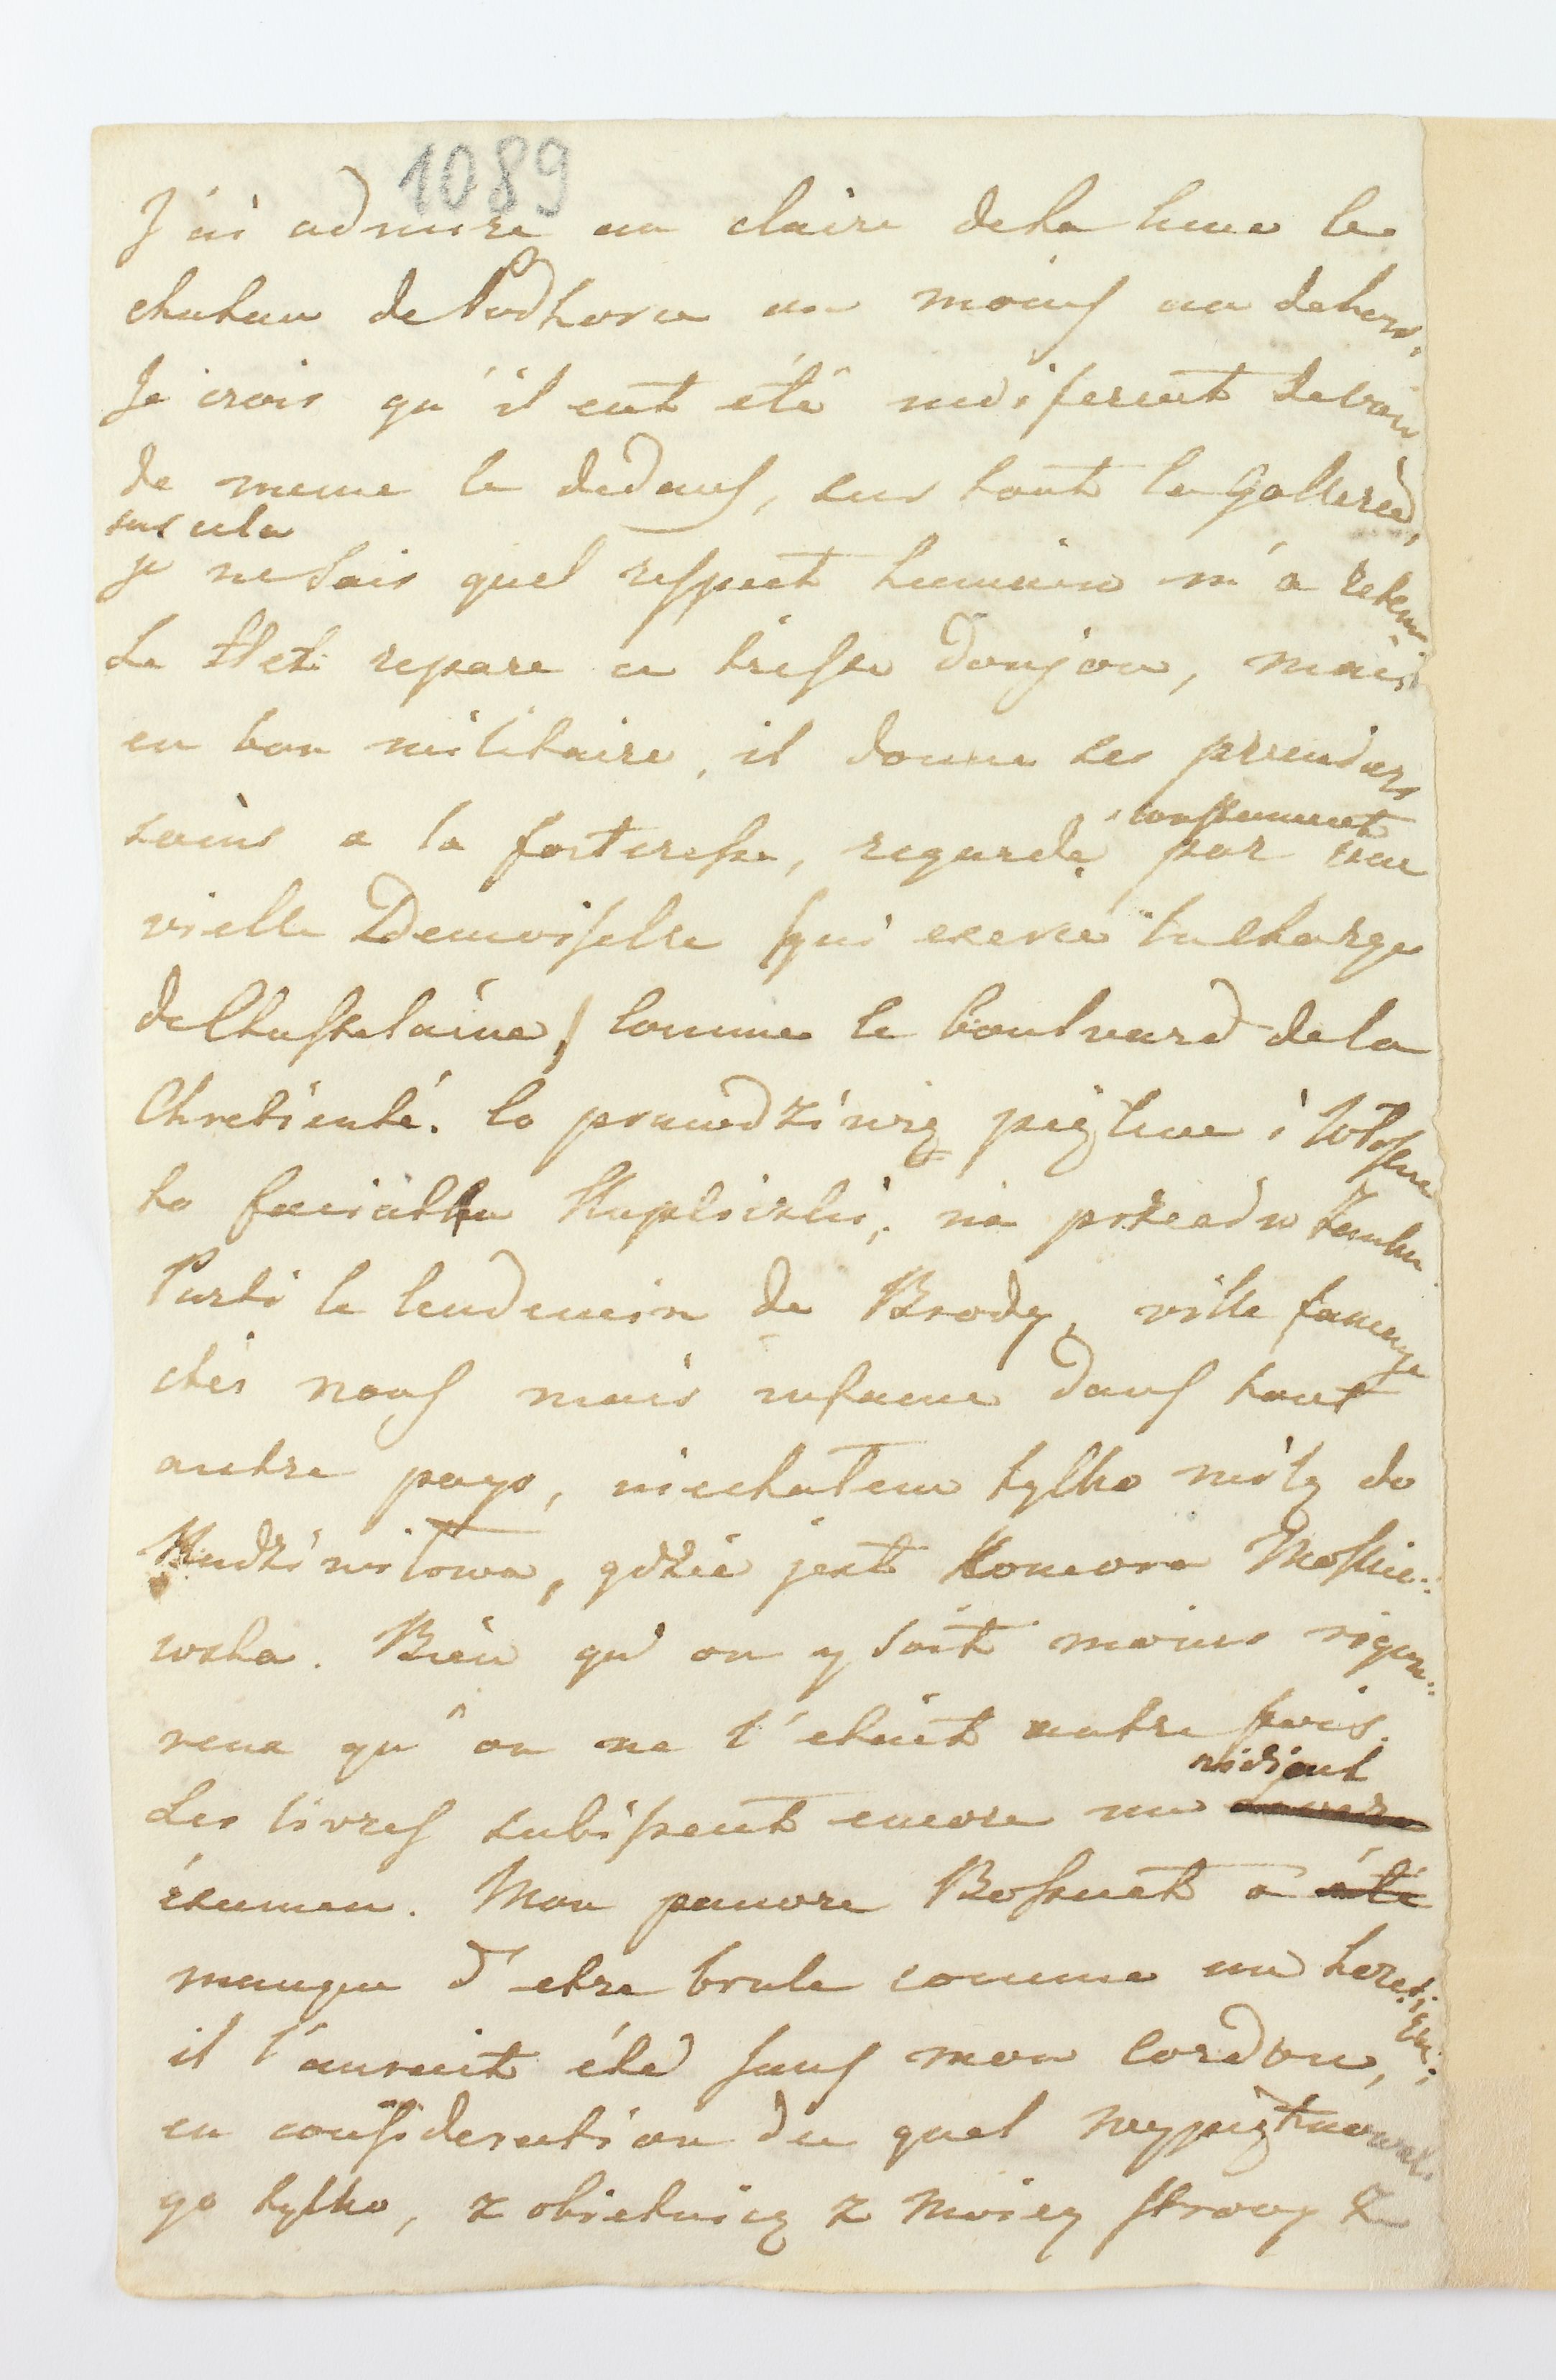 1089
J'ai admire au claire de la lune le
chateau de Podhorce au moins au dehors.
Je crois qu'il eut été indiferent de voir
de meme le dedans, sur tout la Gallerie,
sur cela
je ne sais quel respect humain m'a retenu
Le Het: repare ce triste Donjon, mais
en bon militaire, il donne ses premiers
soins a la forteresse, regardé constamment par une
vielle Demoiselle /qui exerce la charge
de Chastelaine/ comme le boulvard de la
Chretienté. Co prawdziwię piękne i własne
to familia Kapliczki, nie przeciw Zamku
Parti le lendemein de Brody, ville fameuse
chés nous mais infame dans tout
autre pays, niechałem tylko milę do
Radziwiłowa, gdzie jest Komora Moskie:
wska. Bien qu'on y soit moins rigou:
reux qu'on ne l'étoit autre fois.
Les livres subissent encore un ridicul
examen. Mon pauvre Bossuet a été
manque d'etre brulé comme un heretique;
il l'auroit été sans mon cordon,
en consideration du quel wypiętnowali
go tylko, z obietnicą z moiey strony z